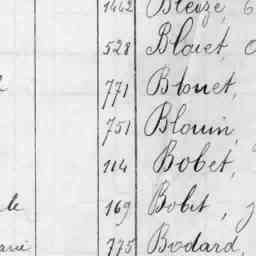 1442 Bleuze, 6
528 Blouet,
771 Blouet,
751 Blouin,
114 Bobet,
le 169 Bobet,
775 Bodard,